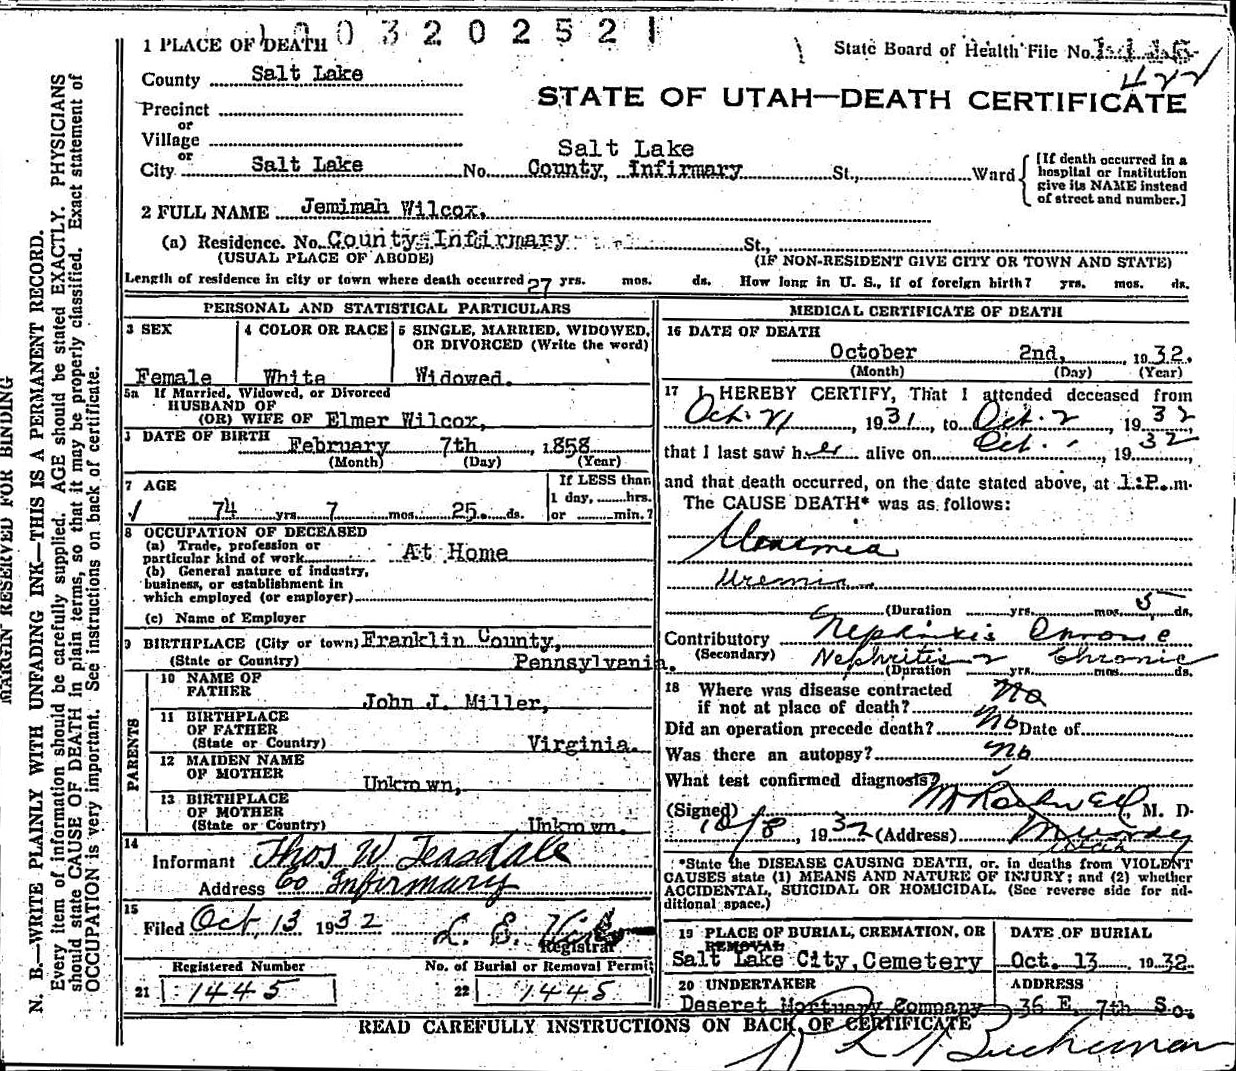 1003202521
1 PLACE OF DEATH
State Board of Health File No.
422
County Salt Lake
STATE OF UTAH—DEATH CERTIFICATE
Precinct
or
Village
or
City Salt Lake No. Salt Lake County, Infirmary St., Ward
[If death occurred in a hospital or institution give its NAME instead of street and number.]
2 FULL NAME Jemimah Wilcox,
(a) Residence. No. County Infirmary St.,
(USUAL PLACE OF ABODE) (IF NON-RESIDENT GIVE CITY OR TOWN AND STATE)
Length of residence in city or town where death occurred 27 yrs. mos. ds. How long in U. S., if of foreign birth? yrs. mos. ds.
PERSONAL AND STATISTICAL PARTICULARS
3 SEX Female
4 COLOR OR RACE White
5 SINGLE, MARRIED, WIDOWED, OR DIVORCED (Write the word) Widowed.
5a If Married, Widowed, or Divorced
HUSBAND OF
(OR) WIFE OF Elmer Wilcox,
DATE OF BIRTH February 7th, 1858
(Month) (Day) (Year)
7 AGE 74 yrs. 7 mos. 25. ds.
If LESS than
1 day, hrs.
or min.?
8 OCCUPATION OF DECEASED
(a) Trade, profession or
particular kind of work At Home
(b) General nature of industry,
business, or establishment in
which employed (or employer)
(c) Name of Employer
9 BIRTHPLACE (City or town) Franklin County,
(State or Country) Pennsylvania.
PARENTS
10 NAME OF
FATHER John J. Miller,
11 BIRTHPLACE
OF FATHER
(State or Country) Virginia.
12 MAIDEN NAME
OF MOTHER Unknown,
13 BIRTHPLACE
OF MOTHER
(State or Country) Unknown.
14
Informant Thos W Teasdale
Address Co Infirmary
15
Filed Oct. 13 1932 L. E.
Registrar
Registered Number No. of Burial or Removal Permit
21 1445 22 1445
MEDICAL CERTIFICATE OF DEATH
16 DATE OF DEATH
October 2nd, 1932.
(Month) (Day) (Year)
17 I HEREBY CERTIFY, That I attended deceased from
Oct. 21, 1931, to Oct. 2, 1932
that I last saw her alive on Oct. 1, 1932
and that death occurred, on the date stated above, at 1:P.m
The CAUSE DEATH* was as follows:
Uraemia
Uremia
(Duration yrs. mos. 5 ds.
Contributory Nephritis Chronic
(Secondary) Nephritis Chronic
(Duration yrs. mos. ds.
18 Where was disease contracted
if not at place of death? No
Did an operation precede death? No Date of
Was there an autopsy? No
What test confirmed diagnosis?
(Signed) M. D.
10/8, 1932 (Address) Murray
Utah
*State the DISEASE CAUSING DEATH, or, in deaths from VIOLENT
CAUSES state (1) MEANS AND NATURE OF INJURY; and (2) whether
ACCIDENTAL, SUICIDAL OR HOMICIDAL. (See reverse side for ad-
ditional space.)
19 PLACE OF BURIAL, CREMATION, OR REMOVAL
Salt Lake City, Cemetery
DATE OF BURIAL
Oct. 13 1932
20 UNDERTAKER
Deseret Mortuary Company
ADDRESS
36 E. 7th So.
READ CAREFULLY INSTRUCTIONS ON BACK OF CERTIFICATE
MARGIN RESERVED FOR BINDING
N. B.—WRITE PLAINLY WITH UNFADING INK—THIS IS A PERMANENT RECORD.
Every item of information should be carefully supplied. AGE should be stated EXACTLY. PHYSICIANS
should state CAUSE OF DEATH in plain terms, so that it may be properly classified. Exact statement of
OCCUPATION is very important. See instructions on back of certificate.